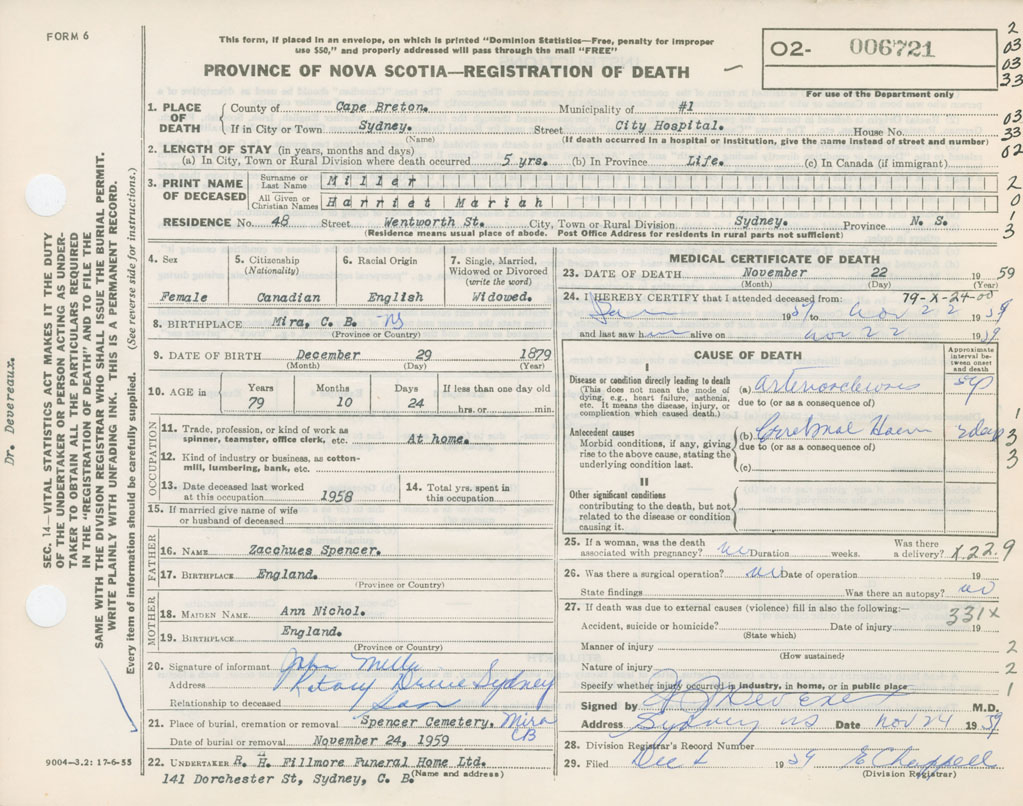 FORM 6
This form, if placed in an envelope, on which is printed "Dominion Statistics—Free, penalty for improper
use $50," and properly addressed will pass through the mail "FREE"
PROVINCE OF NOVA SCOTIA—REGISTRATION OF DEATH
02- 006721
For use of the Department only
2
03
03
33
03
33
02
2
0
1
3
1. PLACE OF DEATH
County of Cape Breton. Municipality of #1
If in City or Town Sydney. Street City Hospital. House No.
(Name) (If death occurred in a hospital or institution, give the name instead of street and number)
2. LENGTH OF STAY (in years, months and days)
(a) In City, Town or Rural Division where death occurred 5 yrs. (b) In Province Life. (c) In Canada (if immigrant)
3. PRINT NAME OF DECEASED
Surname or Last Name Miller
All Given or Christian Names Harriet Mariah
RESIDENCE No. 48 Street Wentworth St. City, Town or Rural Division Sydney. Province N. S.
(Residence means usual place of abode. Post Office Address for residents in rural parts not sufficient)
4. Sex
Female
5. Citizenship
(Nationality)
Canadian
6. Racial Origin
English
7. Single, Married,
Widowed or Divorced
(write the word)
Widowed.
8. BIRTHPLACE Mira, C. B. NS
(Province or Country)
9. DATE OF BIRTH December 29 1879
(Month) (Day) (Year)
10. AGE in
Years Months Days If less than one day old
79 10 24 hrs. or min.
OCCUPATION
11. Trade, profession, or kind of work as
spinner, teamster, office clerk, etc. At home.
12. Kind of industry or business, as cotton-
mill, lumbering, bank, etc.
13. Date deceased last worked
at this occupation 1958
14. Total yrs. spent in
this occupation
15. If married give name of wife
or husband of deceased
FATHER
16. NAME Zacchues Spencer.
17. BIRTHPLACE England.
(Province or Country)
MOTHER
18. MAIDEN NAME Ann Nichol.
19. BIRTHPLACE England.
(Province or Country)
20. Signature of informant John Miller
Address Rotary Drive Sydney
Relationship to deceased Son
21. Place of burial, cremation or removal Spencer Cemetery. Mira
CB
Date of burial or removal November 24, 1959
22. UNDERTAKER R. H. Fillmore Funeral Home Ltd.
141 Dorchester St, Sydney, C. B. (Name and address)
MEDICAL CERTIFICATE OF DEATH
23. DATE OF DEATH November 22 1959
(Month) (Day) (Year)
24. I HEREBY CERTIFY that I attended deceased from: 79-X-24-00
Jan 19 to Nov 22 1959
and last saw h alive on Nov 22 1959
CAUSE OF DEATH
Approximate
interval be-
tween onset
and death
I
Disease or condition directly leading to death
(This does not mean the mode of
dying, e.g., heart failure, asthenia,
etc. It means the disease, injury, or
complication which caused death.)
(a) arteriosclerosis
due to (or as a consequence of)
Antecedent causes
Morbid conditions, if any, giving
rise to the above cause, stating the
underlying condition last.
(b) Cerebral Haem
due to (or as a consequence of)
(c)
II
Other significant conditions
contributing to the death, but not
related to the disease or condition
causing it.
1
3
3
25. If a woman, was the death
associated with pregnancy? no Duration weeks. Was there
a delivery? X22.9
26. Was there a surgical operation? no Date of operation 19
State findings Was there an autopsy? no
27. If death was due to external causes (violence) fill in also the following:— 331X
Accident, suicide or homicide? Date of injury 19
(State which)
Manner of injury 2
(How sustained)
Nature of injury 2
Specify whether injury occurred in industry, in home, or in public place 1
Signed by M.D.
Address Sydney NS Date Nov 24 1959.
28. Division Registrar's Record Number
29. Filed Dec 1959 E Chappell
(Division Registrar)
Dr. Devereaux.
SEC. 14—VITAL STATISTICS ACT MAKES IT THE DUTY
OF THE UNDERTAKER OR PERSON ACTING AS UNDER-
TAKER TO OBTAIN ALL THE PARTICULARS REQUIRED
IN THE "REGISTRATION OF DEATH" AND TO FILE THE
SAME WITH THE DIVISION REGISTRAR WHO SHALL ISSUE THE BURIAL PERMIT.
WRITE PLAINLY WITH UNFADING INK. THIS IS A PERMANENT RECORD.
Every item of information should be carefully supplied. (See reverse side for instructions.)
9004-3.2: 17-6-55